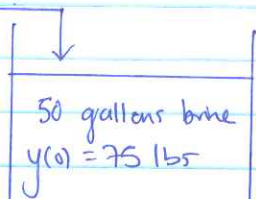 50 gallons brine
y(0) = 75 lbs